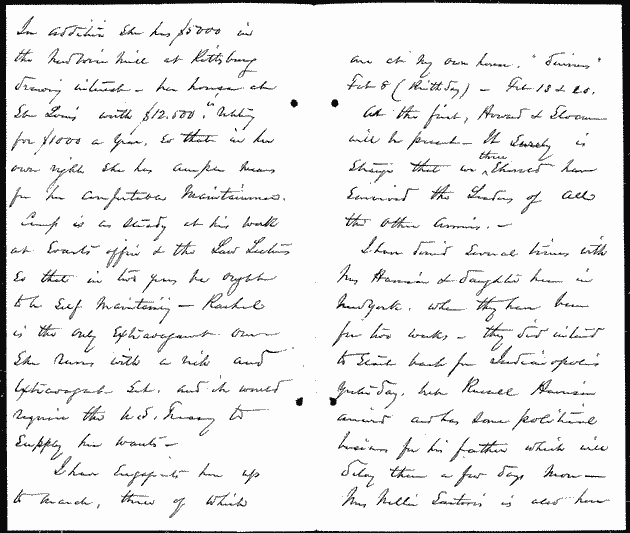 In addition she has $5000 in
the heat Mill at Pittsburg
drawing interest — her house at
St Louis worth $12.000. "renting
for $1000 a year. So that in her
own right she has ample means
for her comfortable Maintainance.
Cump is as steady at his work
at Evarts office & the Law Lectures
So that in two years he ought
to be Self Maintaining — Rachel
is the only Extravagant one
She runs with a rich and
Extravagant Set. and it would
require the U.S. Treasury to
Supply her wants —
I have Engagements here up
to March, three of which
are at my own house. "Dinners"
Feb 8 (Birthday) — Feb 18 & 20.
At the first, Howard & Slocum
will be present — It Surely is
Strange that we three should have
Survived the Leaders of all
the other Armies. —
I have dined Several times with
Mrs Harrison & daughter here in
New York. when they have been
for two weeks — they did intend
to go back for Indianapolis
yesterday. but Russell Harrison
arrived and has some political
business for his father which will
delay them a few days more —
Mrs Nellie Sartoris is also here